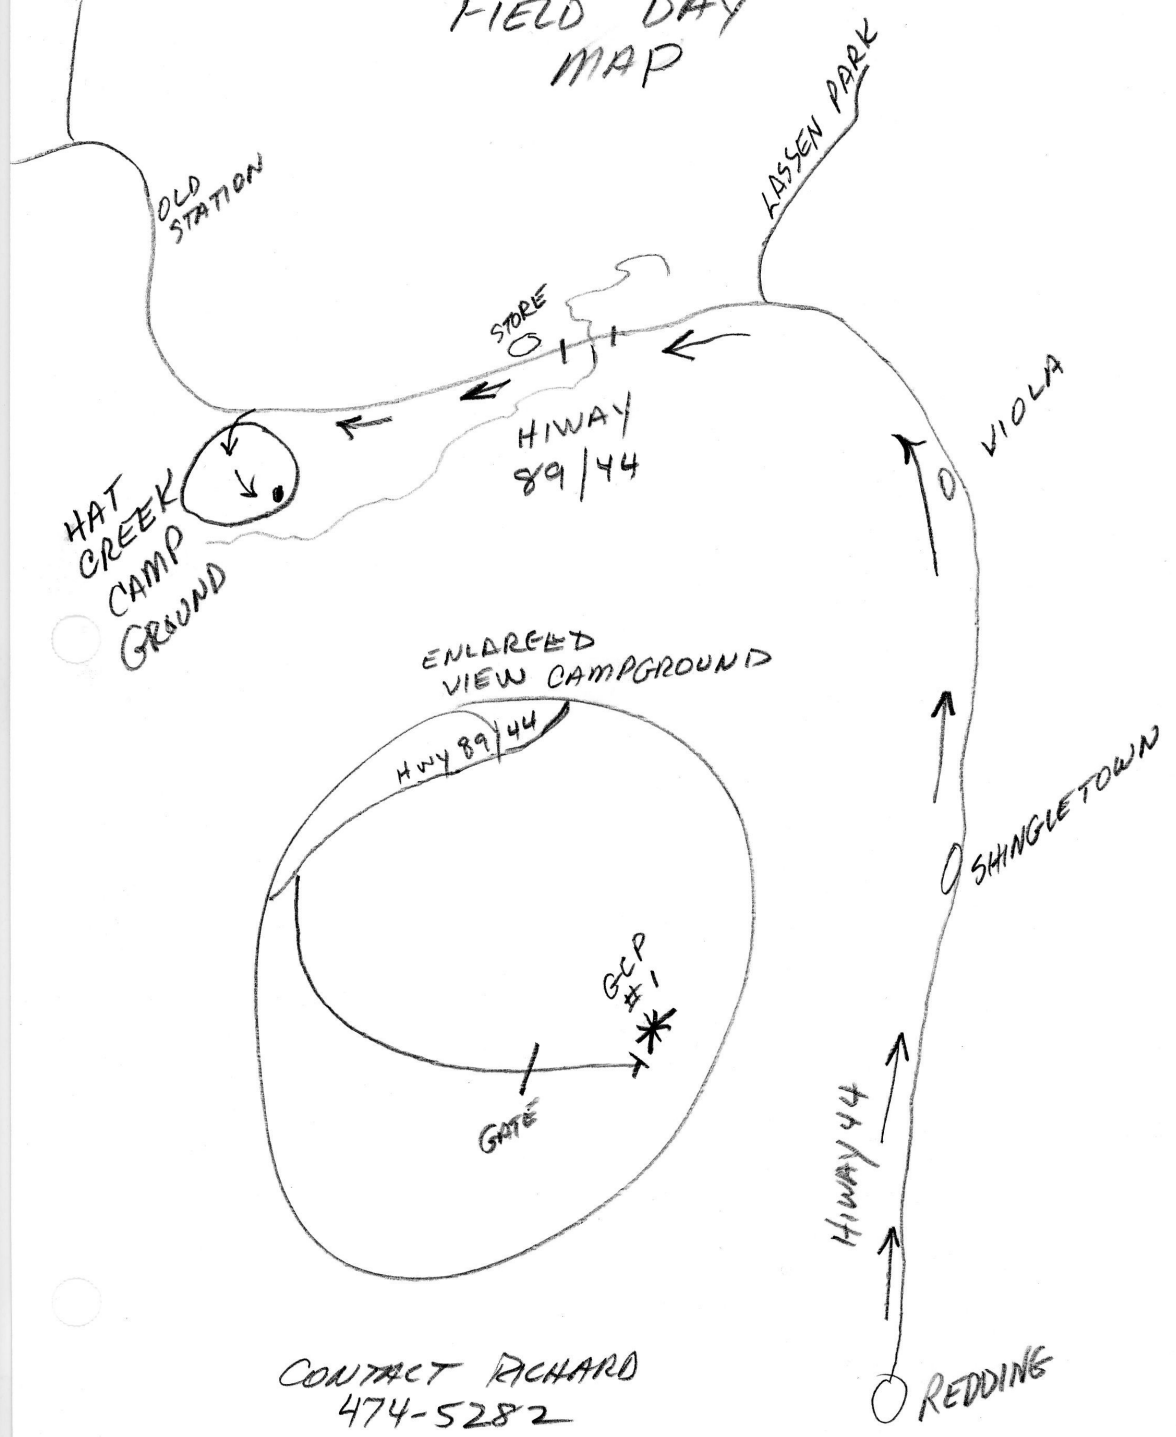 FIELD DAY
MAP
LASSEN PARK
OLD
STATION
STORE
HIWAY
89/44
VIOLA
HAT
CREEK
CAMP
GROUND
ENLARGED
VIEW CAMPGROUND
HWY 89/44
SHINGLETOWN
GCP
#1
GATE
HIWAY 44
REDDING
CONTACT RICHARD
474-5282